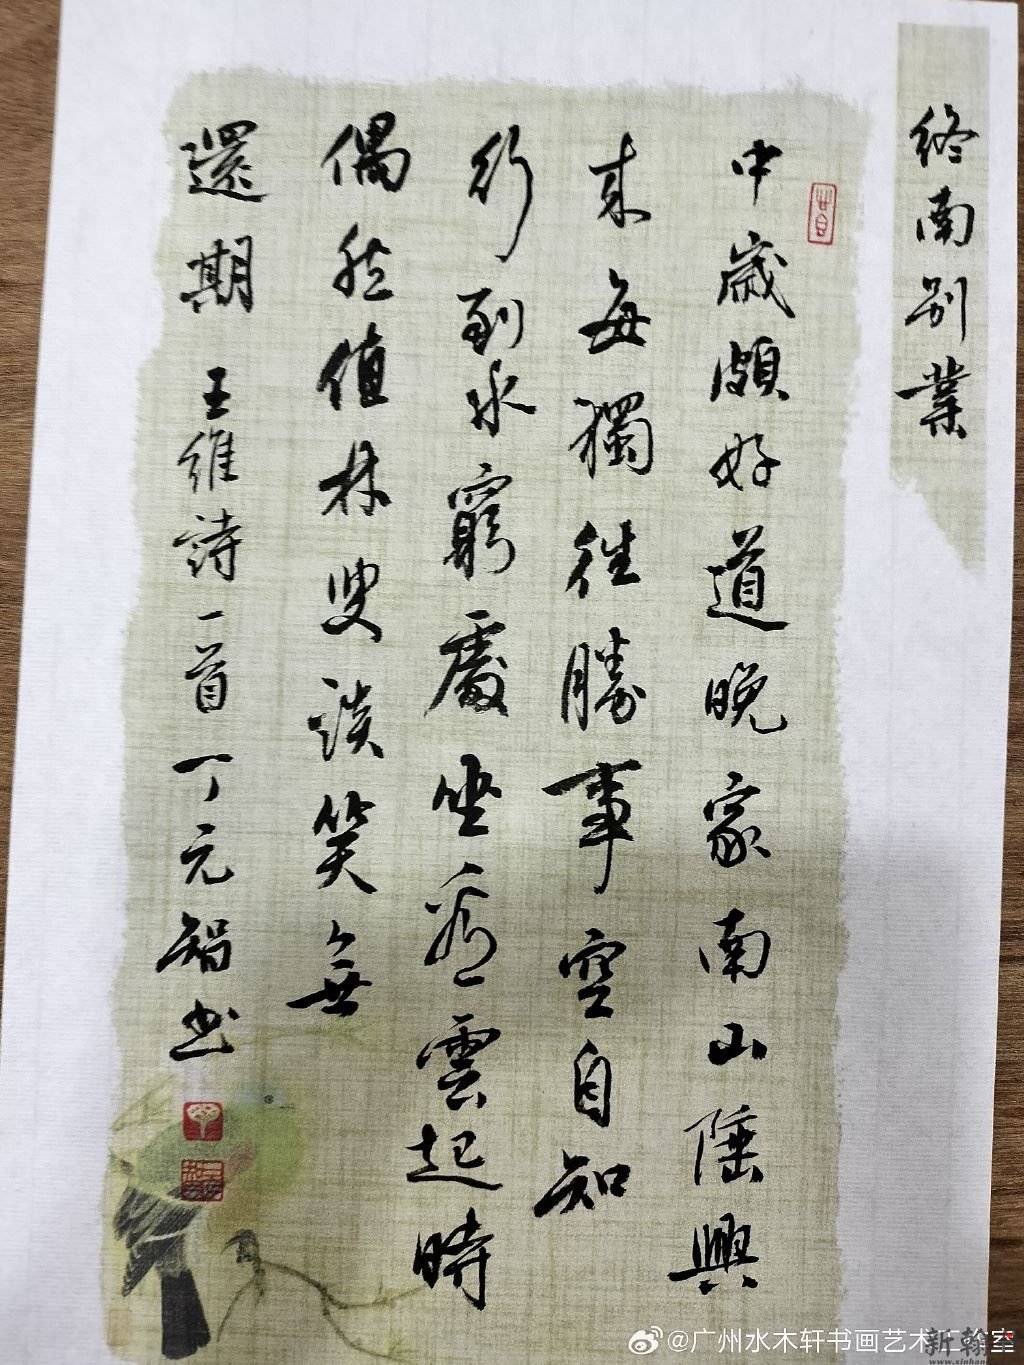 終南别業
中歲頗好道晚家南山陲興
来每獨往勝事空自知
行到水窮處坐看雲起時
偶然值林叟談笑無
還期 王維詩一首丁元智书
@广州水木轩书画艺术工作室
新翰
www.xinhan